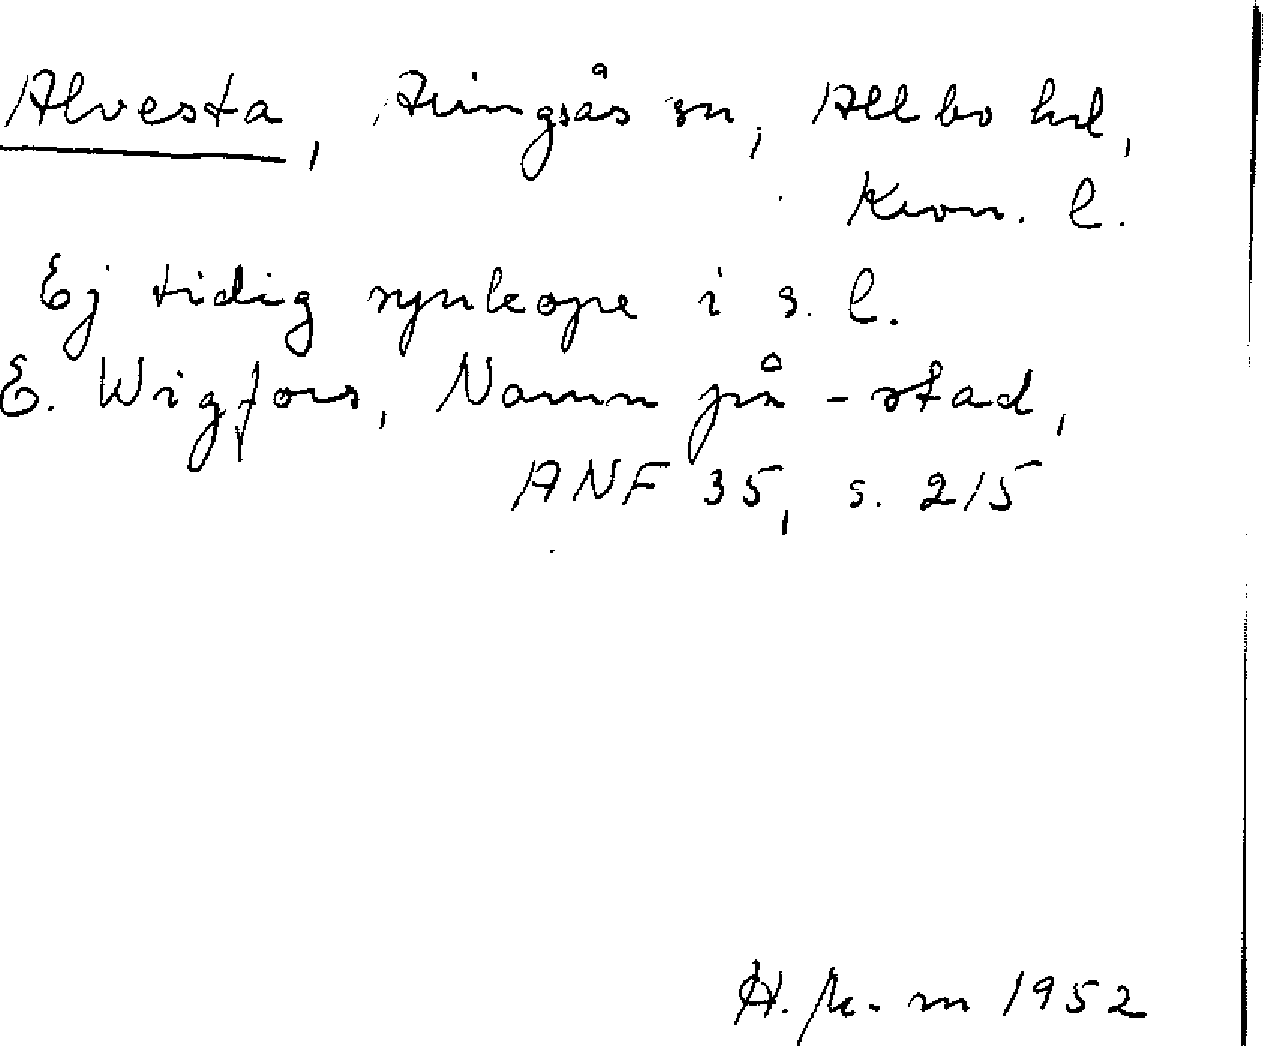 Alvesta, Aringsås sn, Allbo hd,
Kron. l.
Ej tidig synkope i s. l.
E. Wigfors, Namn på -stad,
ANF 35, s. 215
1952